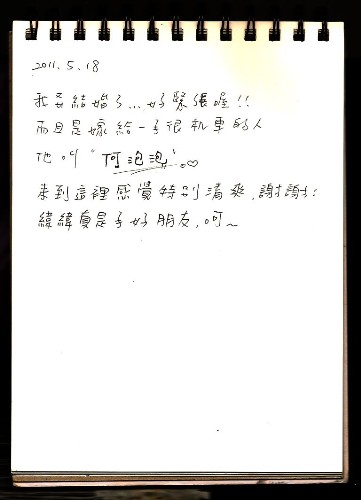 2011.5.18
我要結婚了...好緊張喔!!
而且是嫁給一了很机車的人
他叫"阿泡泡".♡
來到這裡感覺特別清爽,謝謝!:
緯緯真是了好朋友,呵~